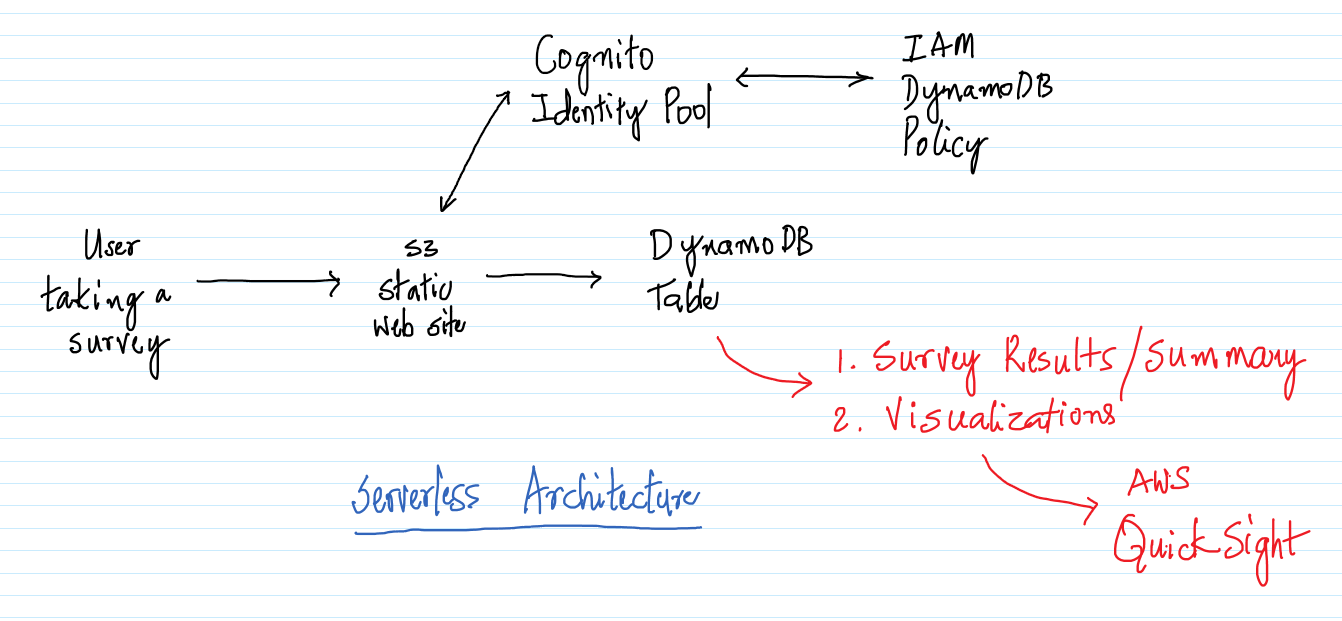 Cognito
Identity Pool
IAM
DynamoDB
Policy
User
taking a
survey
S3
static
web site
DynamoDB
Table
1. Survey Results/Summary
2. Visualizations
Serverless Architecture
AWS
QuickSight